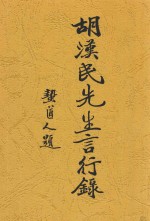 胡漢民先生言行錄
蟄園人題